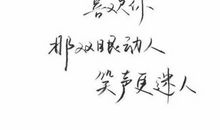 喜欢你
那双眼动人
笑声更迷人